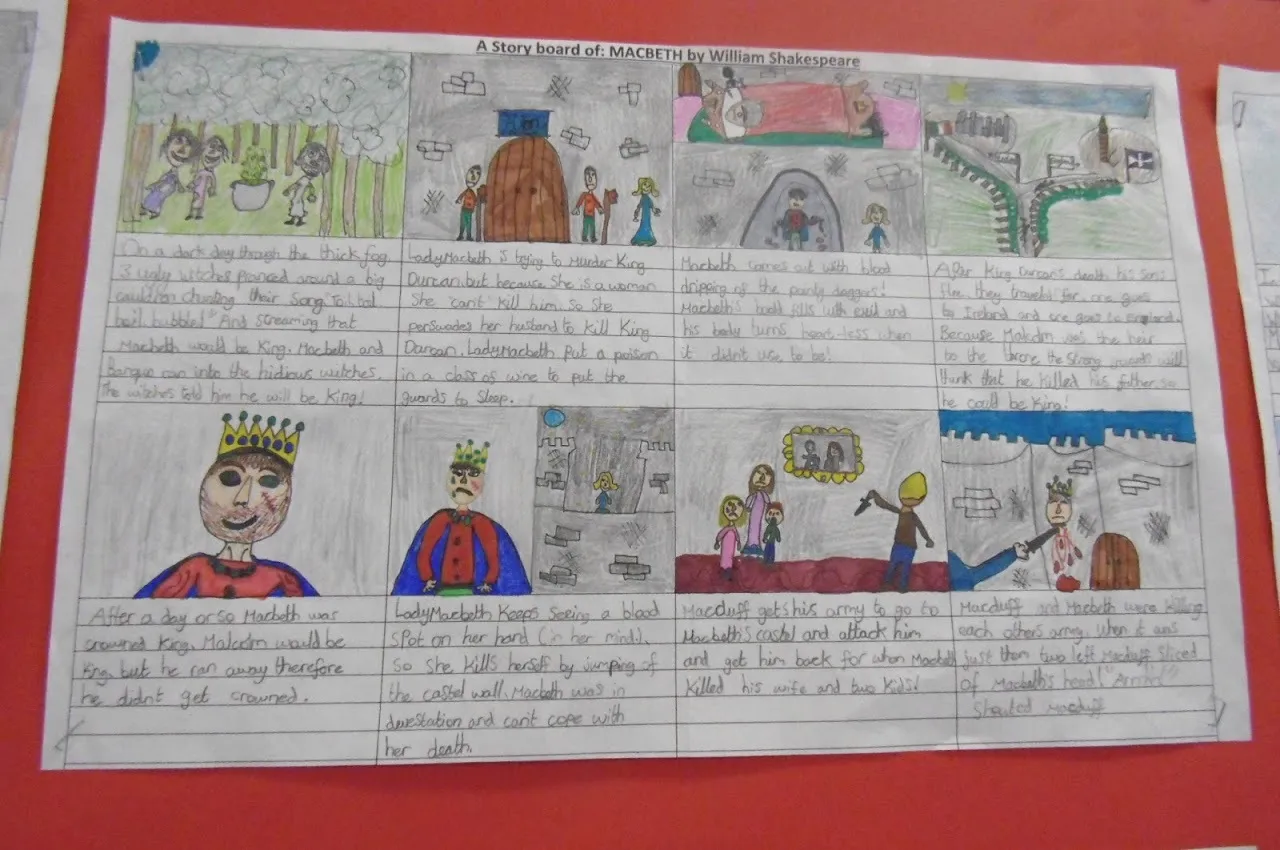 A Story board of: MACBETH by William Shakespeare
On a dark day through the thick fog
3 ugly witches pranced around a big
cauldron chanting their Song
boil, bubble" And screaming that
Macbeth would be King. Macbeth and
Banquo ran into the hidious witches.
The witches told him he will be King!
Lady Macbeth is trying to Murder King
Duncan, but because she is a woman
She 'can't' kill him, so she
persuades her husband to kill King
Duncan. Lady Macbeth Put a poison
in a class of wine to put the
guards to Sleep.
Macbeth comes out with blood
dripping of the pointy daggers!
Macbeth's head fills with evil and
his body turns heart-less when
it didn't use to be!
After King Duncan's death his sons
flee, they travel far, one goes
to Ireland and one goes to England.
Because Malcolm was the heir
to the throne the Strong will
think that he killed his father so
he could be King!
After a day or so Macbeth was
crowned King, Malcolm would be
King but he ran away therefore
he didn't get crowned.
Lady Macbeth Keeps Seeing a blood
Spot on her hand (in her mind).
So She Kills herself by jumping of
the castel wall. Macbeth was in
devestation and can't cope with
her death.
Macduff gets his army to go to
Macbeth's castel and attack him
and get him back for when Macbeth
Killed his wife and two Kids!
Macduff and Macbeth were killing
each others army, when it was
just them two left Macduff Sliced
of Macbeth's head!
Shouted Macduff